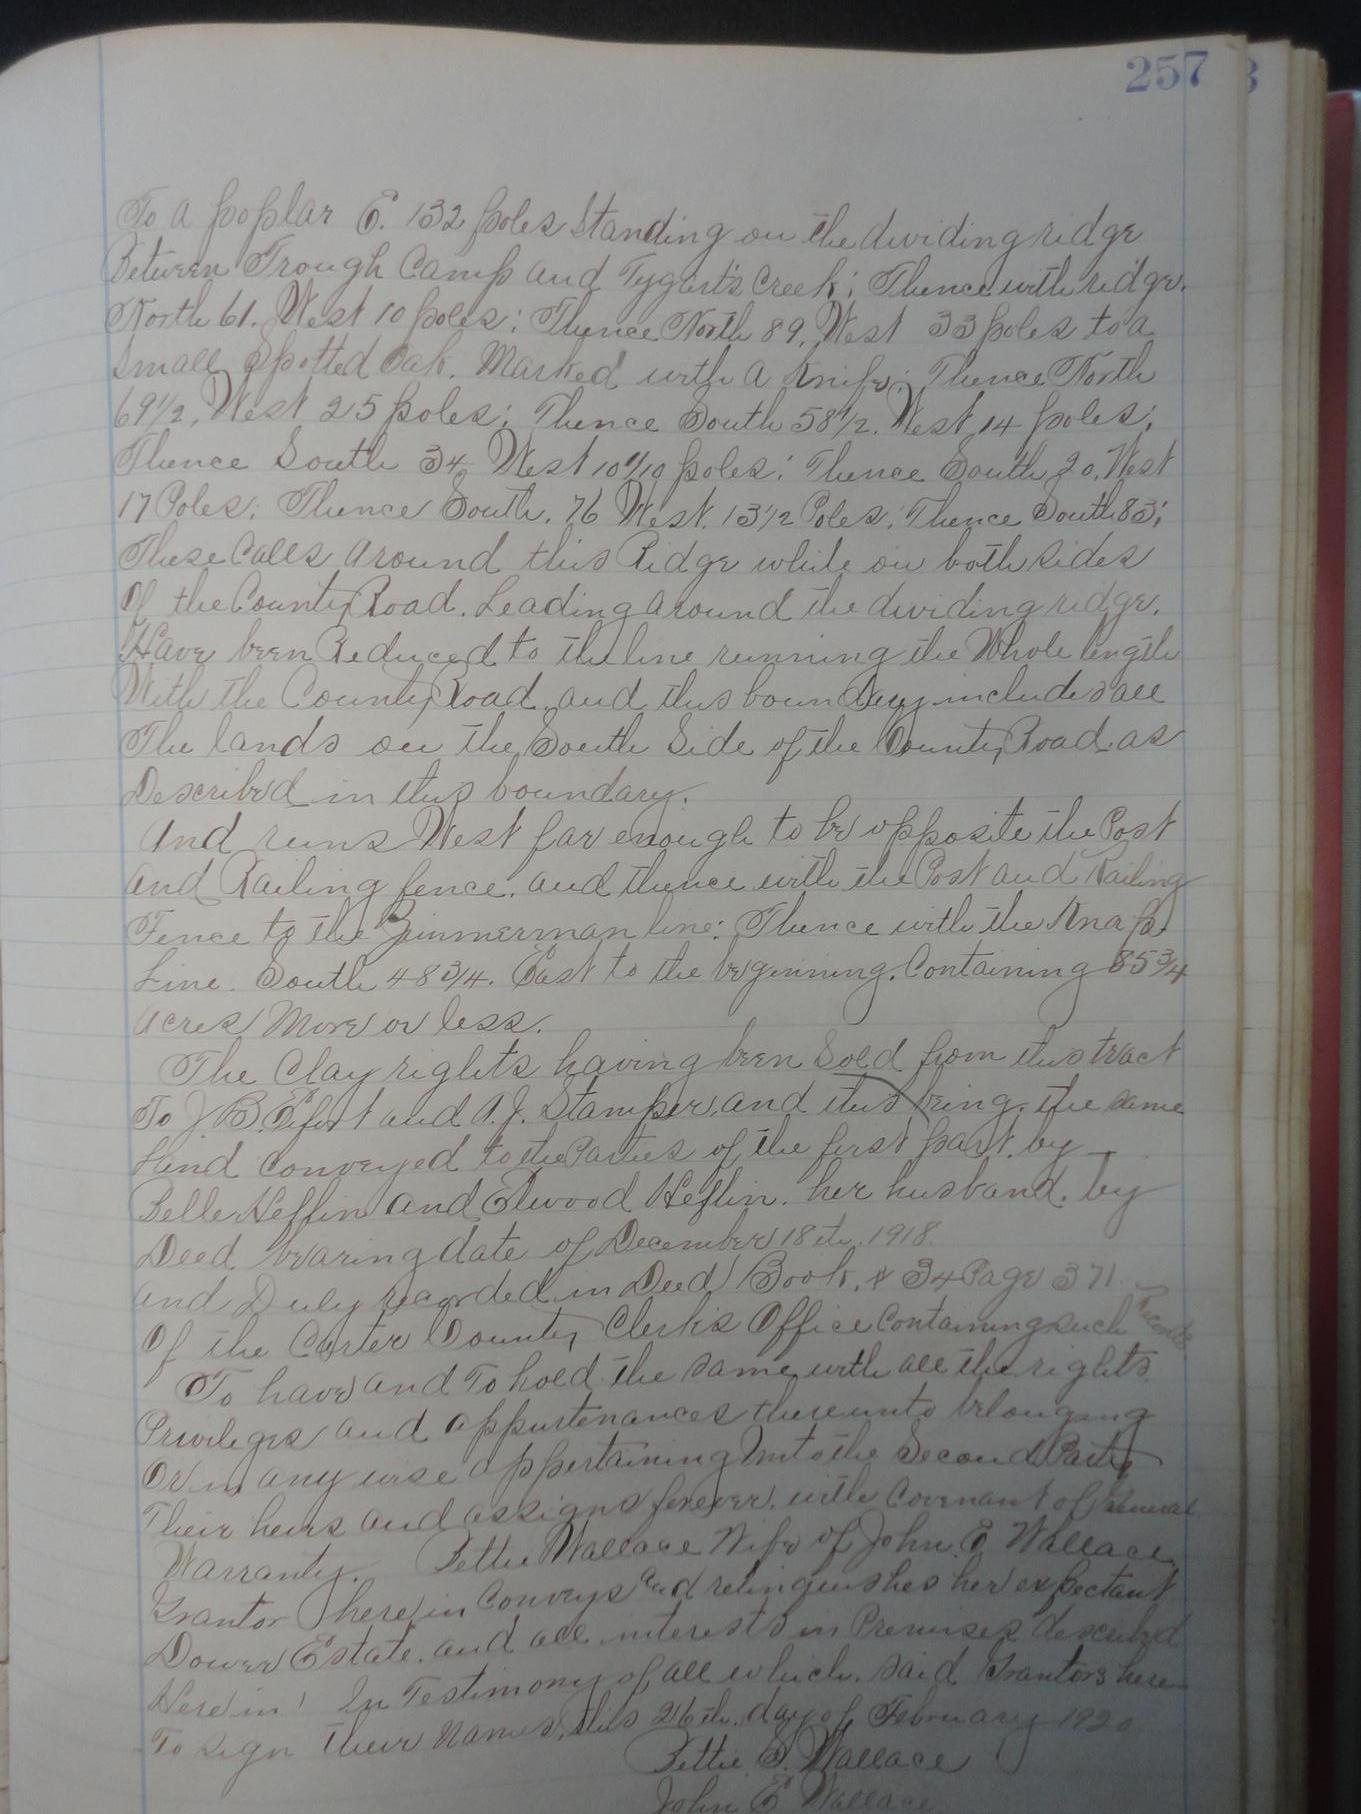 257
To a poplar E. 132 poles Standing on the dividing ridge
Between Trough Camp and Tygert's Creek; Thence with ridge.
North 61. West 10 poles; Thence North 89. West 33 poles to a
Small Spotted Oak. Marked with a Knife; Thence North
69 1/2, West 25 poles; Thence South 58 1/2. West 14 poles;
Thence South 34 West poles; Thence South 20. West
17 Poles; Thence South. 76 West. 13 1/2 Poles; Thence South 83;
These Calls around this Ridge while on both sides
Of the County Road. Leading around the dividing ridge.
Have been Reduced to the line running the Whole length
With the County Road, and this boundary includes all
The lands on the South Side of the County Road as
Described in this boundary.
And runs West far enough to be opposite the Post
and Railing fence. and thence with the Post and Railing
Fence to the Zimmerman line; Thence with the Knapp
Line. South 48 3/4. East to the beginning. Containing 85 3/4
acres More or less.
The Clay rights having been Sold from this tract
To J. B. and A. J. Stamper, and this being. the same
Land conveyed to the Parties of the first part. by
Belle Heflin and Elwood Heflin. her husband. by
Deed bearing date of December 18th. 1918.
and Duly recorded in Deed Book. # 34 Page 371.
Of the Carter County Clerk's Office Containing such Records
To have and To hold the same with all the rights
Privileges and appurtenances thereunto belonging
Or in any wise appertaining unto the Second Party
Their heirs and assigns forever. with Covenant of General
Warranty. Bettie Wallace Wife of John. E Wallace
Grantor herein Conveys and relinquishes her expectant
Dower Estate. and all interests in Premises described
Herein! In Testimony of all which. said Grantors here
To sign their names, this 26th. day of February 1920
Bettie S. Wallace
John E Wallace